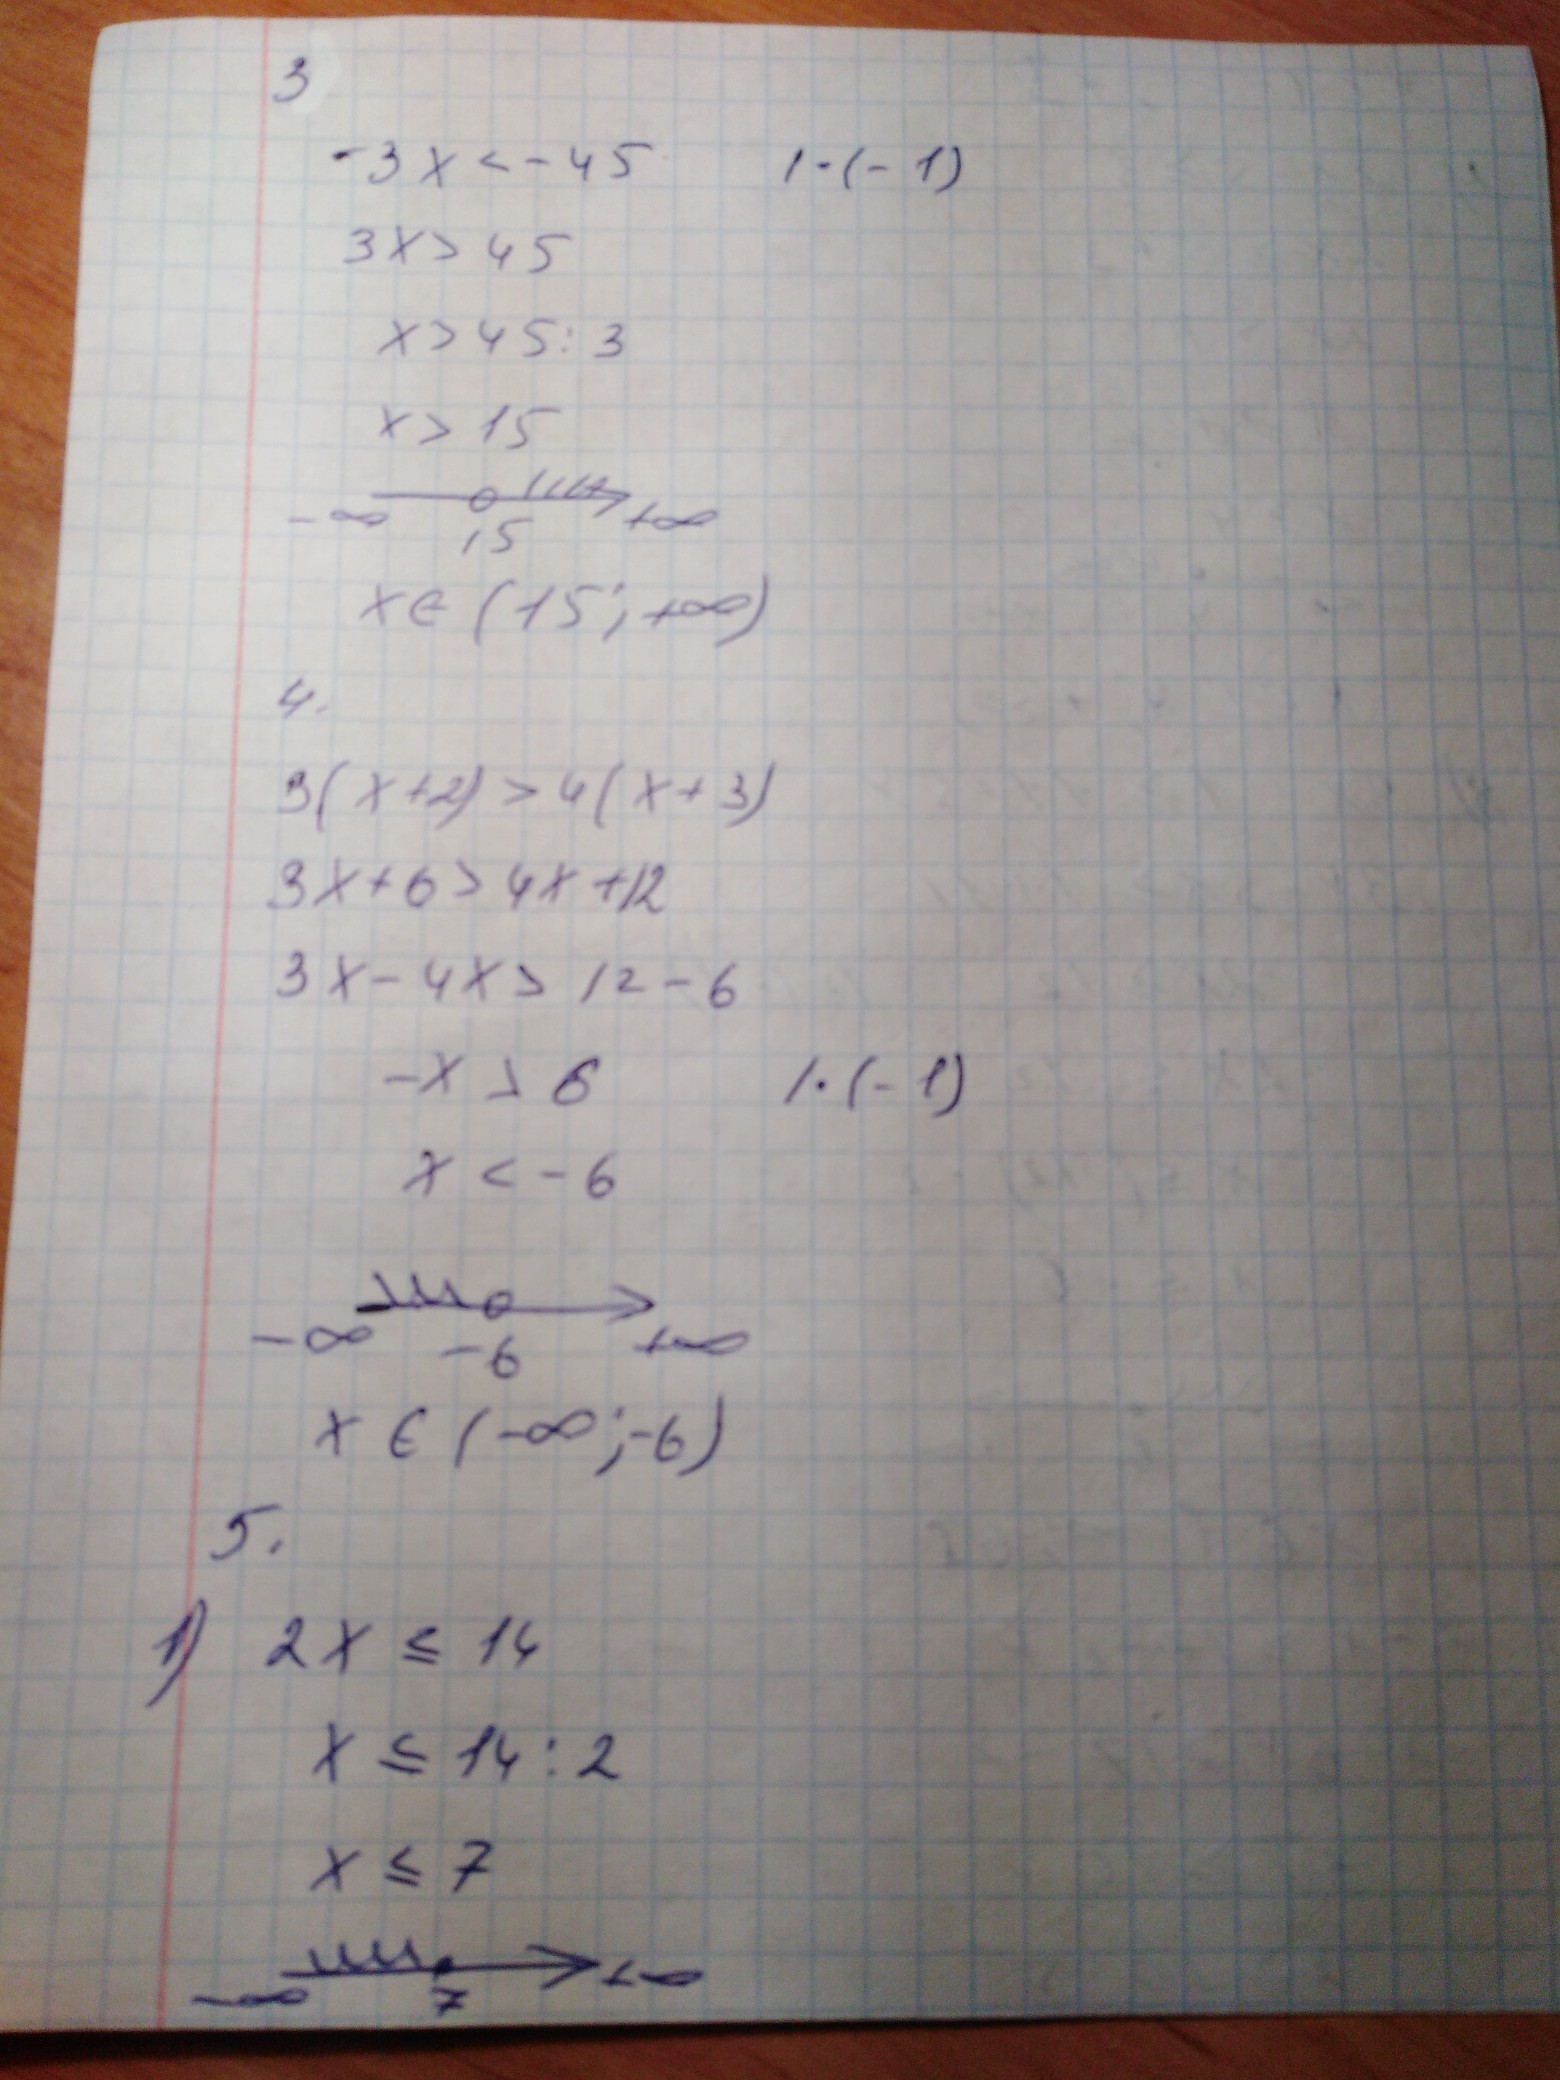 3
-3x < -45 | · (-1)
3x > 45
x > 45 : 3
x > 15
-∞ 15 +∞
x ∈ (15; +∞)
4.
3(x+2) > 4(x+3)
3x+6 > 4x+12
3x - 4x > 12 - 6
-x > 6 | · (-1)
x < -6
-∞ -6 +∞
x ∈ (-∞; -6)
5.
1) 2x ≤ 14
x ≤ 14 : 2
x ≤ 7
-∞ 7 +∞